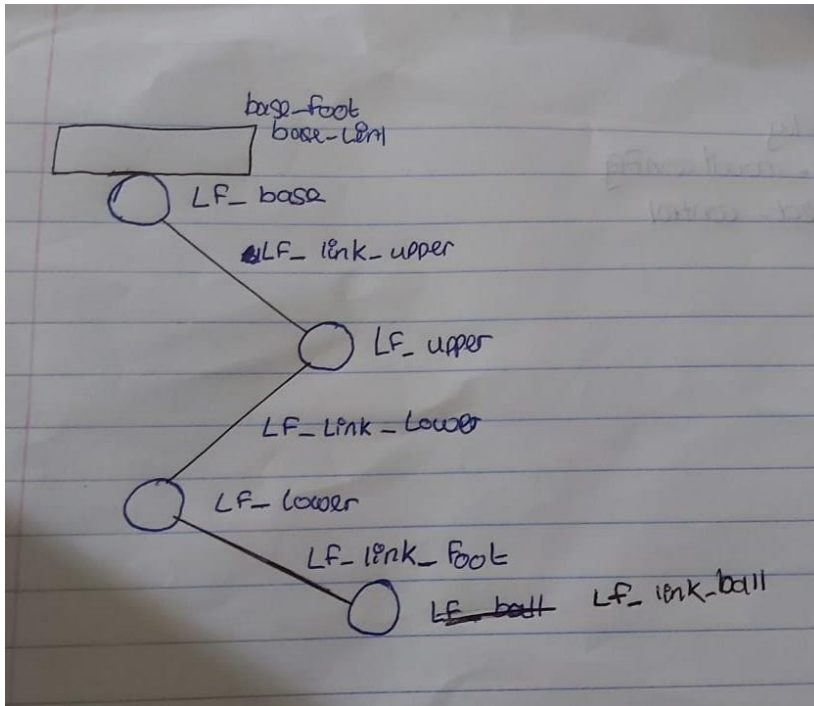 base_foot
base_link
LF_base
LF_link_upper
LF_upper
LF_link_lower
LF_lower
LF_link_foot
LF_ball LF_link_ball